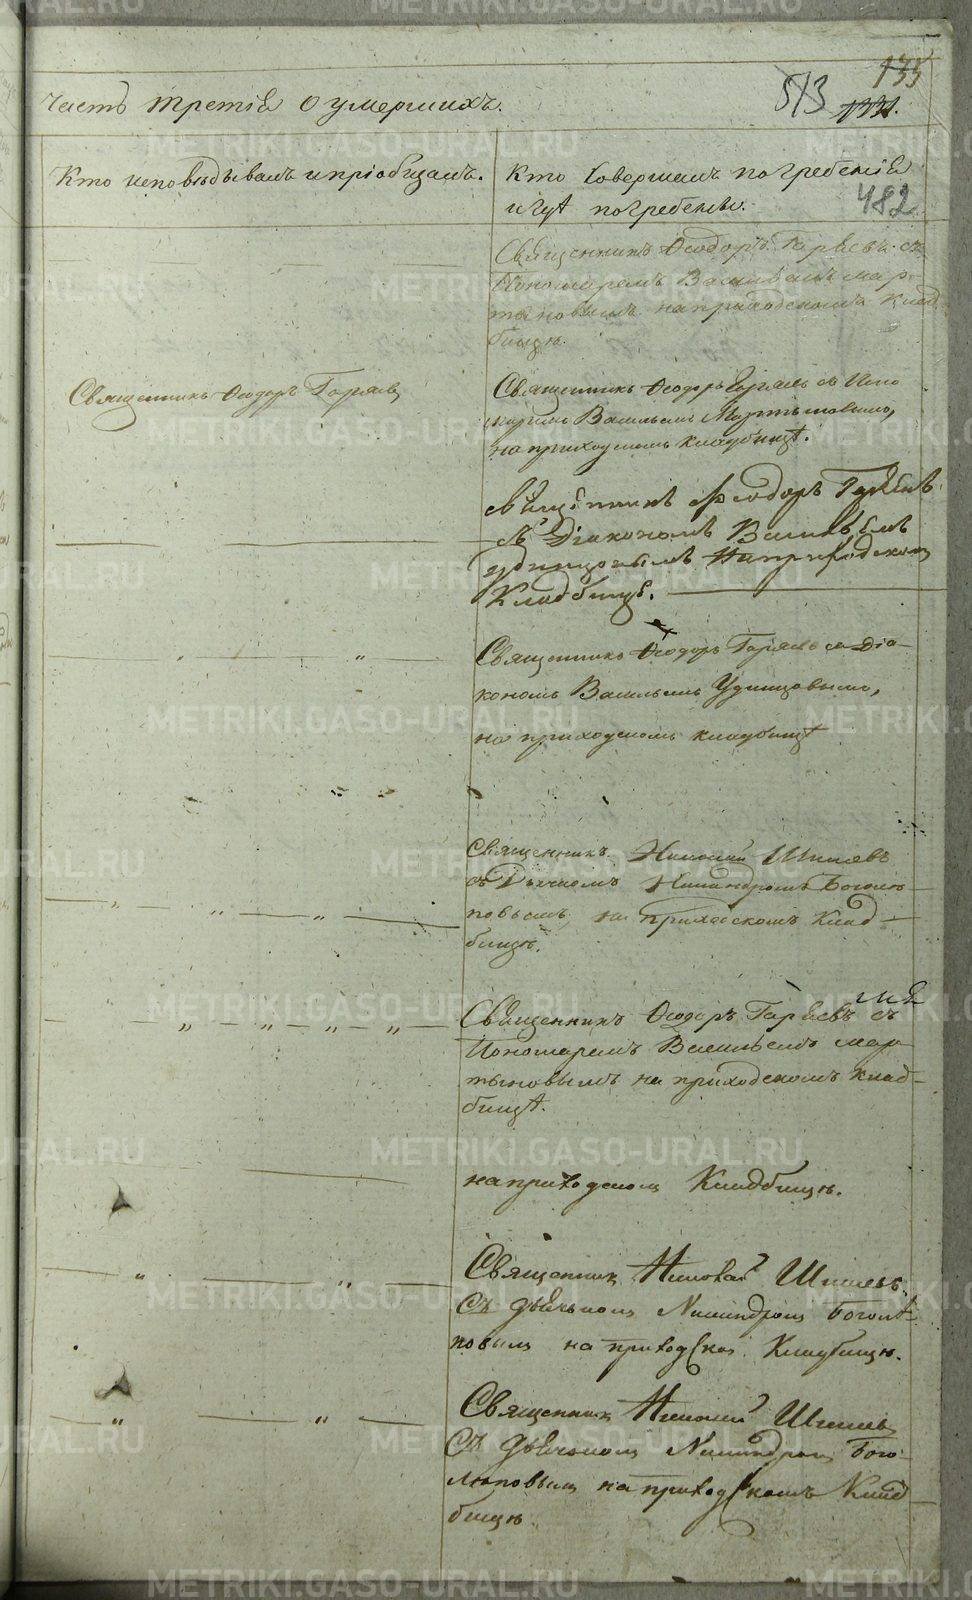 135
513 1131.
Часть третія о умершихъ.
Кто исповѣдывалъ и пріобщалъ.
Кто совершалъ погребеніе
и гдѣ погребены.
482
Священникъ Ѳеодоръ Гаряевъ съ
Пономаремъ Васильемъ Мар-
тыновымъ на приходскомъ клад-
бищѣ.
Священникъ Ѳеодоръ Гаряев
Священникъ Ѳеодоръ Гаряевъ съ Поно
маремъ Васильемъ Мартыновымъ,
на приходскомъ кладбищѣ.
Священникъ Ѳеодоръ Гаряевъ
съ Діакономъ Васильемъ
Удинцовымъ на приходском
Кладбище.
Священникъ Ѳеодоръ Гаряевъ съ Діа-
кономъ Васильемъ Удинцовымъ,
на приходскомъ кладбищѣ
Священникъ Николай Шишевъ
съ Дьячкомъ Никандромъ Боголю-
повымъ, на приходскомъ Клад-
бищѣ.
Священникъ Ѳеодоръ Гаряевъ съ
Пономаремъ Васильемъ Мар-
тыновымъ на приходскомъ клад-
бищѣ.
на приходском Кладбищѣ.
Священник Николай Шишевъ.
Съ дьячьком Никандром Богол
повым на приходском Кладбищѣ.
Священник Николай Шишевъ
Съ дьячьком Никандром Бого-
люповым на приходскомъ Клад
бищѣ.
METRIKI.GASO-URAL.RU